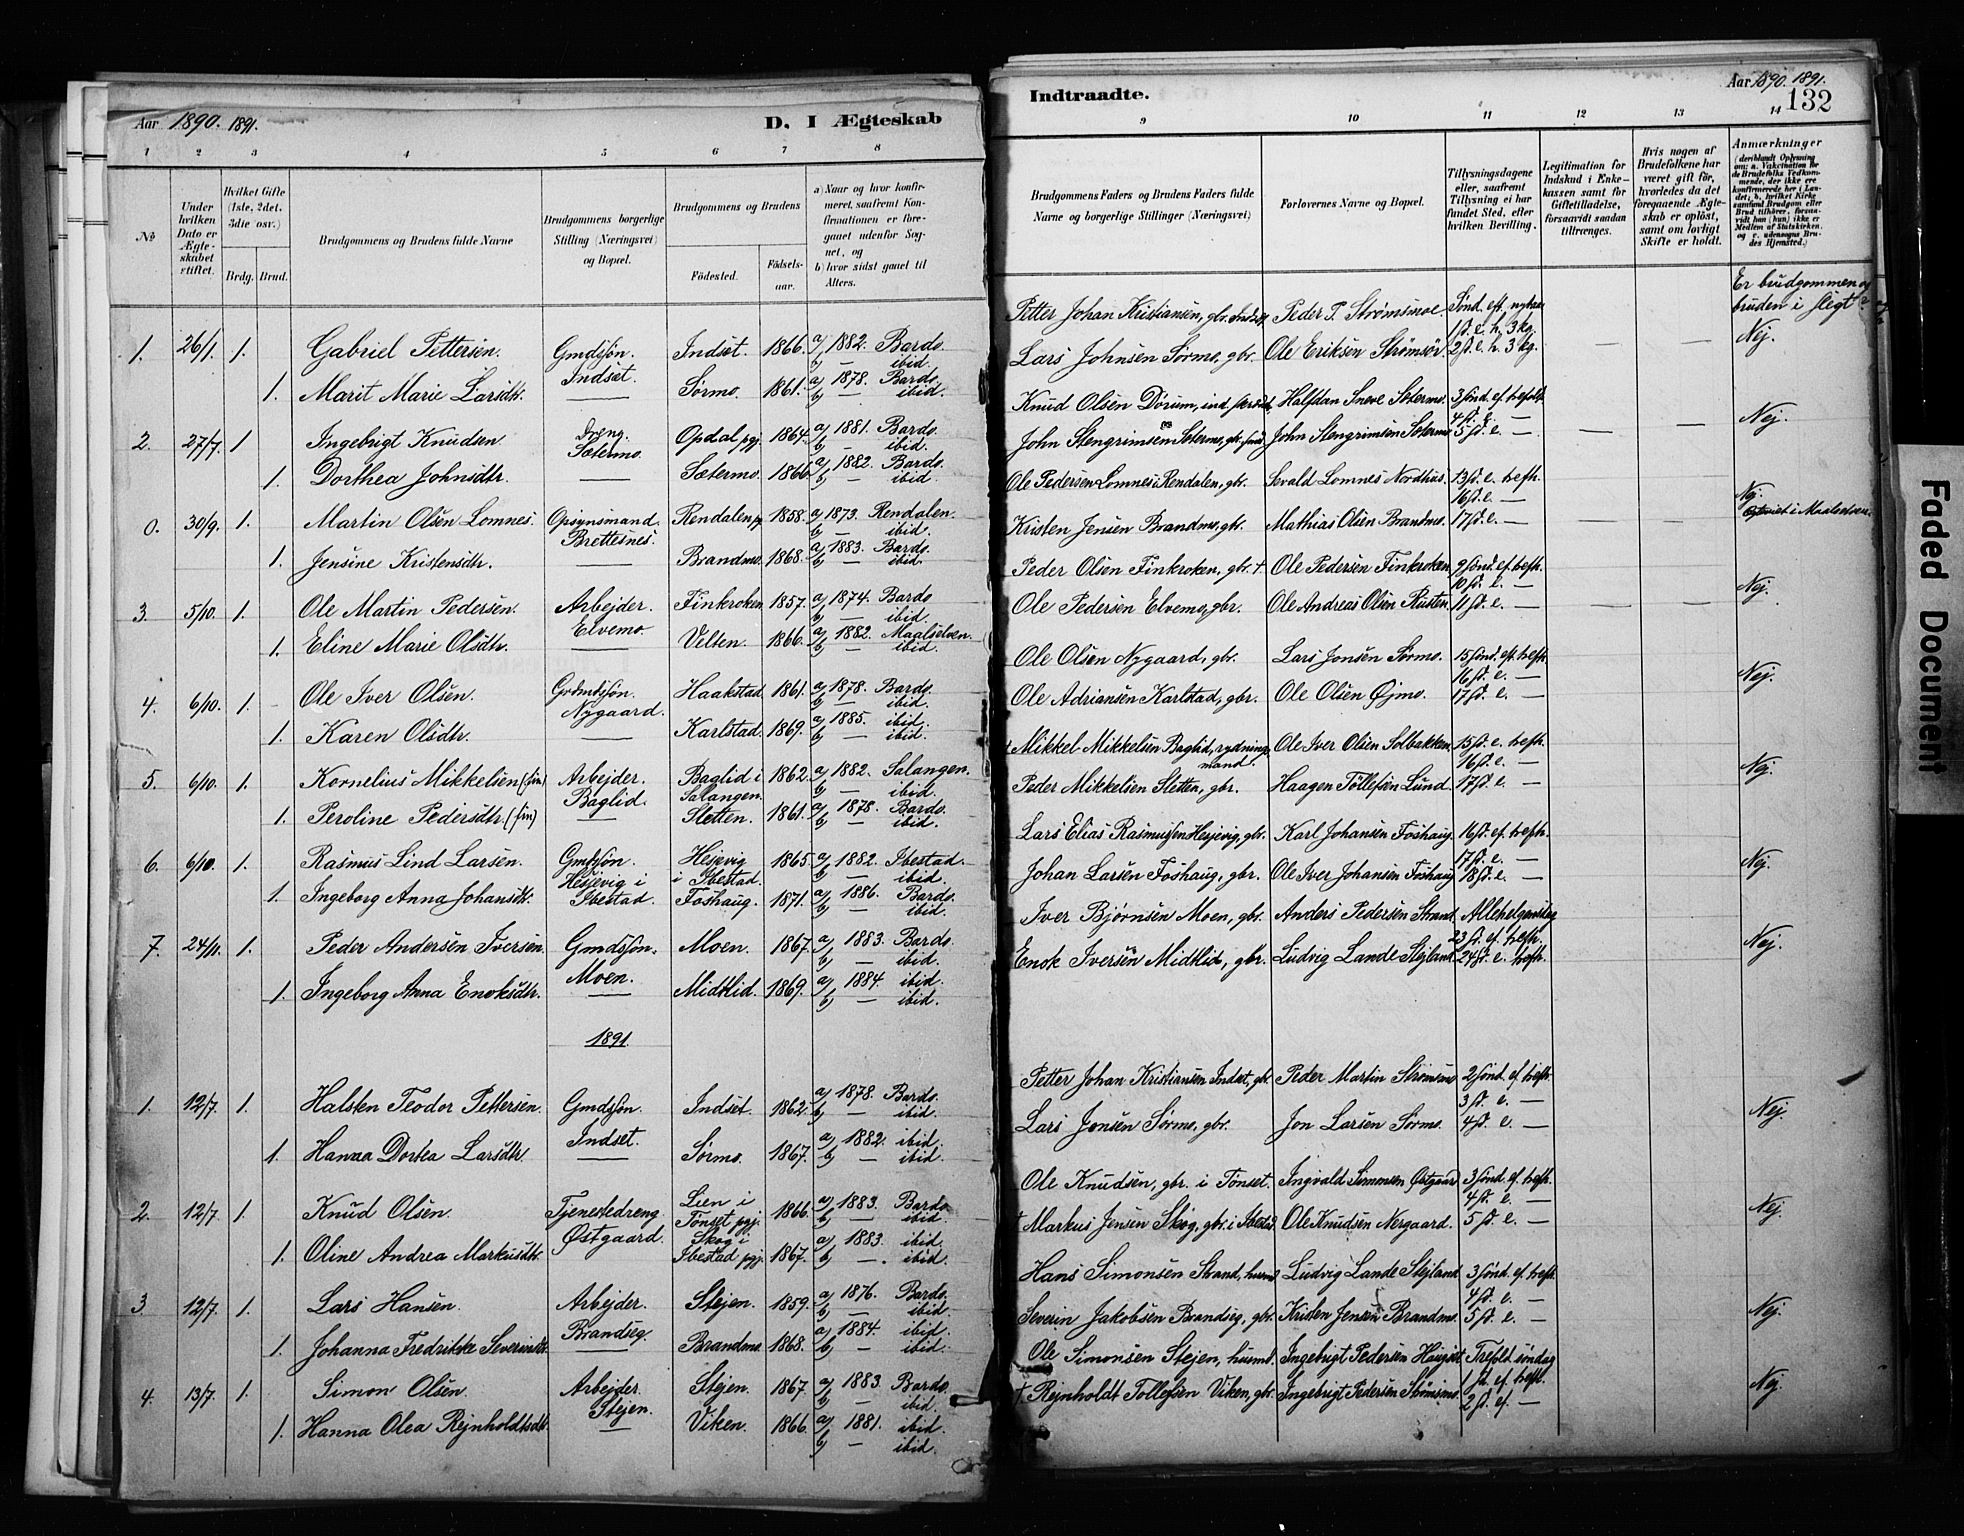 Aar 1890. 1891.
D. I Ægteskab
1 2 3 4 5 6 7 8
No
Under hvilken Dato er Ægteskabet stiftet.
Hvilket Gifte (1ste, 2det, 3die osv.)
Brdg. Brud.
Brudgommens og Brudens fulde Navne
Brudgommens borgerlige Stilling (Næringsvei) og Bopæl.
Brudgommens og Brudens
Fødested. Fødselsaar.
a) Naar og hvor konfirmeret, saafremt Konfirmationen er foregaaet udenfor Sognet, og
b) hvor sidst gaaet til Alters.
1. 26/1 1. Gabriel Pettersen. Gmdsøn. Indset. 1866. a) 1882. Bardo.
Indset. b) — ibid.
1. Marit Marie Larsdtr. — Sørmo. 1861. a) 1878. Bardo.
b) — ibid.
2. 27/7. 1 Ingebrigt Knudsen. Dreng. Opdal pgj. 1864. a) 1881. Bardo.
Sætermo. b) — ibid.
1. Dorthea Johnsdtr. — Sætermo. 1866. a) 1882. Bardo.
b) — ibid.
0. 30/9. 1. Martin Olsen Lomnes. Opsynsmand. Rendalen pgj 1858. a) 1873. Rendalen.
Brettesnes. b) — ibid.
1. Jensine Kristensdtr. — Brandmo. 1868. a) 1883. Bardo.
b) — ibid.
3. 5/10. 1. Ole Martin Pedersen. Arbejder. Finkroken. 1857. a) 1874. Bardo
Elvemo. b) — ibid.
1. Eline Marie Olsdtr. — Velten. 1866. a) 1882. Maalselven.
b) — ibid.
4. 6/10. 1. Ole Iver Olsen. Grdmdsøn. Haakstad. 1861. a) 1878. Bardo.
Nygaard. b) — ibid.
1. Karen Olsdtr. — Karlstad. 1869. a) 1885. ibid.
b) — ibid.
5. 6/10. 1. Kornelius Mikkelsen (fin) Arbejder. Baglid i 1862. a) 1882. Salangen.
Baglid. Salangen. b) — ibid.
1. Peroline Pedersdtr. (fin) — Sletten. 1861. a) 1878. Bardo.
b) — ibid.
6. 6/10. 1. Rasmus Lind Larsen. Gmdsøn. Hesjevig 1865. a) 1882. Ibestad.
Hesjevig i i Ibestad. b) — ibid.
1. Ingeborg Anna Johansdtr. Ibestad. Foshaug. 1871. a) 1886. Bardo.
b) — ibid.
7. 24/11. 1. Peder Andersen Iversen. Gmdsøn. Moen. 1867. a) 1883. Bardo.
Moen. b) — ibid.
1. Ingeborg Anna Enoksdtr. — Midtlid. 1869. a) 1884. ibid.
b) — ibid.
1891
1. 12/7. 1. Halsten Teodor Pettersen. Gmdsøn. Indset. 1862. a) 1878. Bardo.
Indset. b) — ibid.
1. Hanna Dortea Larsdtr. — Sørmo. 1867. a) 1882. ibid.
b) — ibid.
2. 12/7. 1. Knud Olsen. Tjenestedreng. Lien i 1866. a) 1883. Bardo.
Østgaard. Tønset pgj. b) — ibid.
1. Oline Andrea Markusdtr. Skog i Ibestad pgj. 1867. a) 1883. ibid.
b) — ibid.
3. 12/7. 1. Lars Hansen. Arbejder. Stejen. 1859. a) 1876. Bardo.
Brandseg. b) — ibid.
1. Johanna Fredrikke Severinsdtr. — Brandmo. 1868. a) 1884. ibid.
b) — ibid.
4. 13/7. 1. Simon Olsen. Arbejder. Stejen. 1867. a) 1883. Bardo.
Stejen. b) — ibid.
1. Hanna Olea Rejnholdtsdtr. — Viken. 1866. a) 1881. ibid.
b) — ibid.
Indtraadte.
Aar 1890. 1891.
132
9 10 11 12 13 14
Brudgommens Faders og Brudens Faders fulde Navne og borgerlige Stillinger (Næringsvei)
Forlovernes Navne og Bopæl.
Tillysningsdagene eller, saafremt Tillysning ei har fundet Sted, efter hvilken Bevilling.
Legitimation for Indskud i Enkekassen samt for Giftetilladelse, forsaavidt saadan tiltrænges.
Hvis nogen af Brudefolkene har været gift før, hvorledes da det foregaaende Ægteskab er opløst, samt om lovligt Skifte er holdt.
Anmærkninger
(deriblandt Oplysning om: a. Vakcination for de Brudefolks Vedkommende, der ikke ere konfirmerede her i Landet; b. hvilket Kirkesamfund Brudgom eller Brud tilhører, forsaavidt han (hun) ikke er Medlem af Statskirken, og c. udensogns Brudes Hjemsted.)
Er brudgommen og
bruden i slegt?
Petter Johan Kristiansen, gbr. Indset Peder P. Strømsmoe Sønd. eft. nytaar
1 s. e. h. 3 kg.
Lars Johnsen Sørmo, gbr. Ole Eriksen Strømsør. 2 s. e. h. 3 kg. — — Nej.
Knud Olsen Dørum, ind. Halfdan Sneve Sætermo. 3 sønd. ef. trefoldt.
4 s. e. —
John Stengrimsen Sætermo, gbr. John Stengrimsen Sætermo 5 s. e. — — — Nej.
Ole Pedersen Lomnes i Rendalen, gbr. Sevald Lomnes Nordhus. 13 s. e. trefh.
16 s. e. — Nej.
Kristen Jensen Brandmo, gbr. Mathias Olsen Brandmo. 17 s. e. — — — i Maalselven.
Peder Olsen Finkroken, gbr. + Ole Pedersen Finkroken. 9 sønd. ef. trefh.
10 s. e. — Nej.
Ole Pedersen Elvemo, gbr. Ole Andreas Olsen Rusten. 11 s. e. — — —
Ole Olsen Nygaard, gbr. Lars Jonsen Sørmo. 15 sønd. ef. trefh.
16 s. e. — Nej.
Ole Adriansen Karlstad, gbr. Ole Olsen Øjmo. 17 s. e. —
+ Mikkel Mikkelsen Baglid, rydningsmand. Ole Iver Olsen Solbakken. 15 s. e. trefh.
16 s. e. — Nej.
Peder Mikkelsen Sletten, gbr. Haagen Tollefsen Lund. 17 s. e. —
Lars Elias Rasmussen Hesjevig, gbr. Karl Johansen Foshaug. 16 s. ef. trefh.
17 s. e. — Nej.
Johan Larsen Foshaug, gbr. Ole Iver Johansen Foshaug 18 s. e. —
Iver Bjørnsen Moen, gbr. Anders Pedersen Strand. Allehelgensdag
23 s. ef. trefh. Nej.
Enok Iversen Midtlid, gbr. Ludvig Lande Stejland. 24 s. e. trefh.
Petter Johan Kristiansen Indset, gbr. Peder Martin Strømsmo 2 sønd. ef. trefh
3 s. e. — Nej.
Lars Jonsen Sørmo, gbr. Jon Larsen Sørmo. 4 s. e. —
Ole Knudsen, gbr. i Tønset. Ingvald Simonsen Østgaard 3 sønd. ef. trefh.
4 s. e. — Nej.
+ Markus Jensen Skog, gbr. i Ibestad Ole Knudsen Nergaard. 5 s. e. —
Hans Simonsen Strand, husmd Ludvig Lande Stejland. 3 sønd. ef. trefh.
4 s. e. — Nej.
Severin Jakobsen Brandseg, gbr. Kristen Jensen Brandmo. 5 s. e. —
Ole Simonsen Stejen, husmd. Ingebrigt Pedersen Haugset Trefold. søndag
1 s. e. trefh. Nej.
+ Rejnholdt Tollefsen Viken, gbr. Ingebrigt Pedersen Strømsmo. 2 s. ef. —
Faded Document